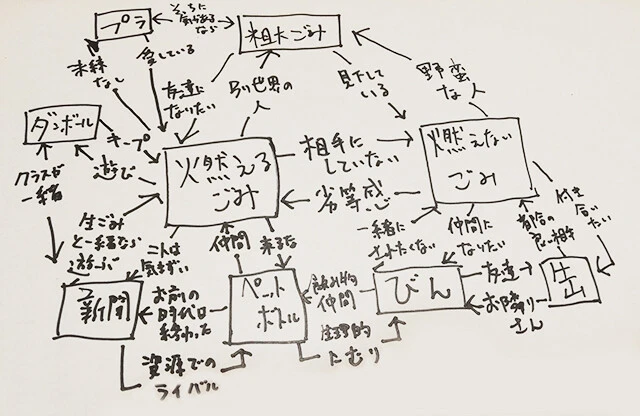 プラ
気があるなら
粗大ごみ
未練
なし
愛している
友達に
なりたい
別世界の
人
見下して
いる
野蛮
な人
ダンボール
キープ
遊び
クラスが
一緒
燃える
ごみ
相手に
していない
劣等感
燃えない
ごみ
生ごみ
と一緒なら
遊ぶ
二人は
気まずい
仲間
来るな
一緒に
されたくない
仲間に
なりたい
都合の
良い相手
付き
合い
たい
新聞
お前の
時代は
終わった
ペット
ボトル
飲み物
仲間
生理的
にむり
びん
友達
お隣
さん
缶
資源での
ライバル